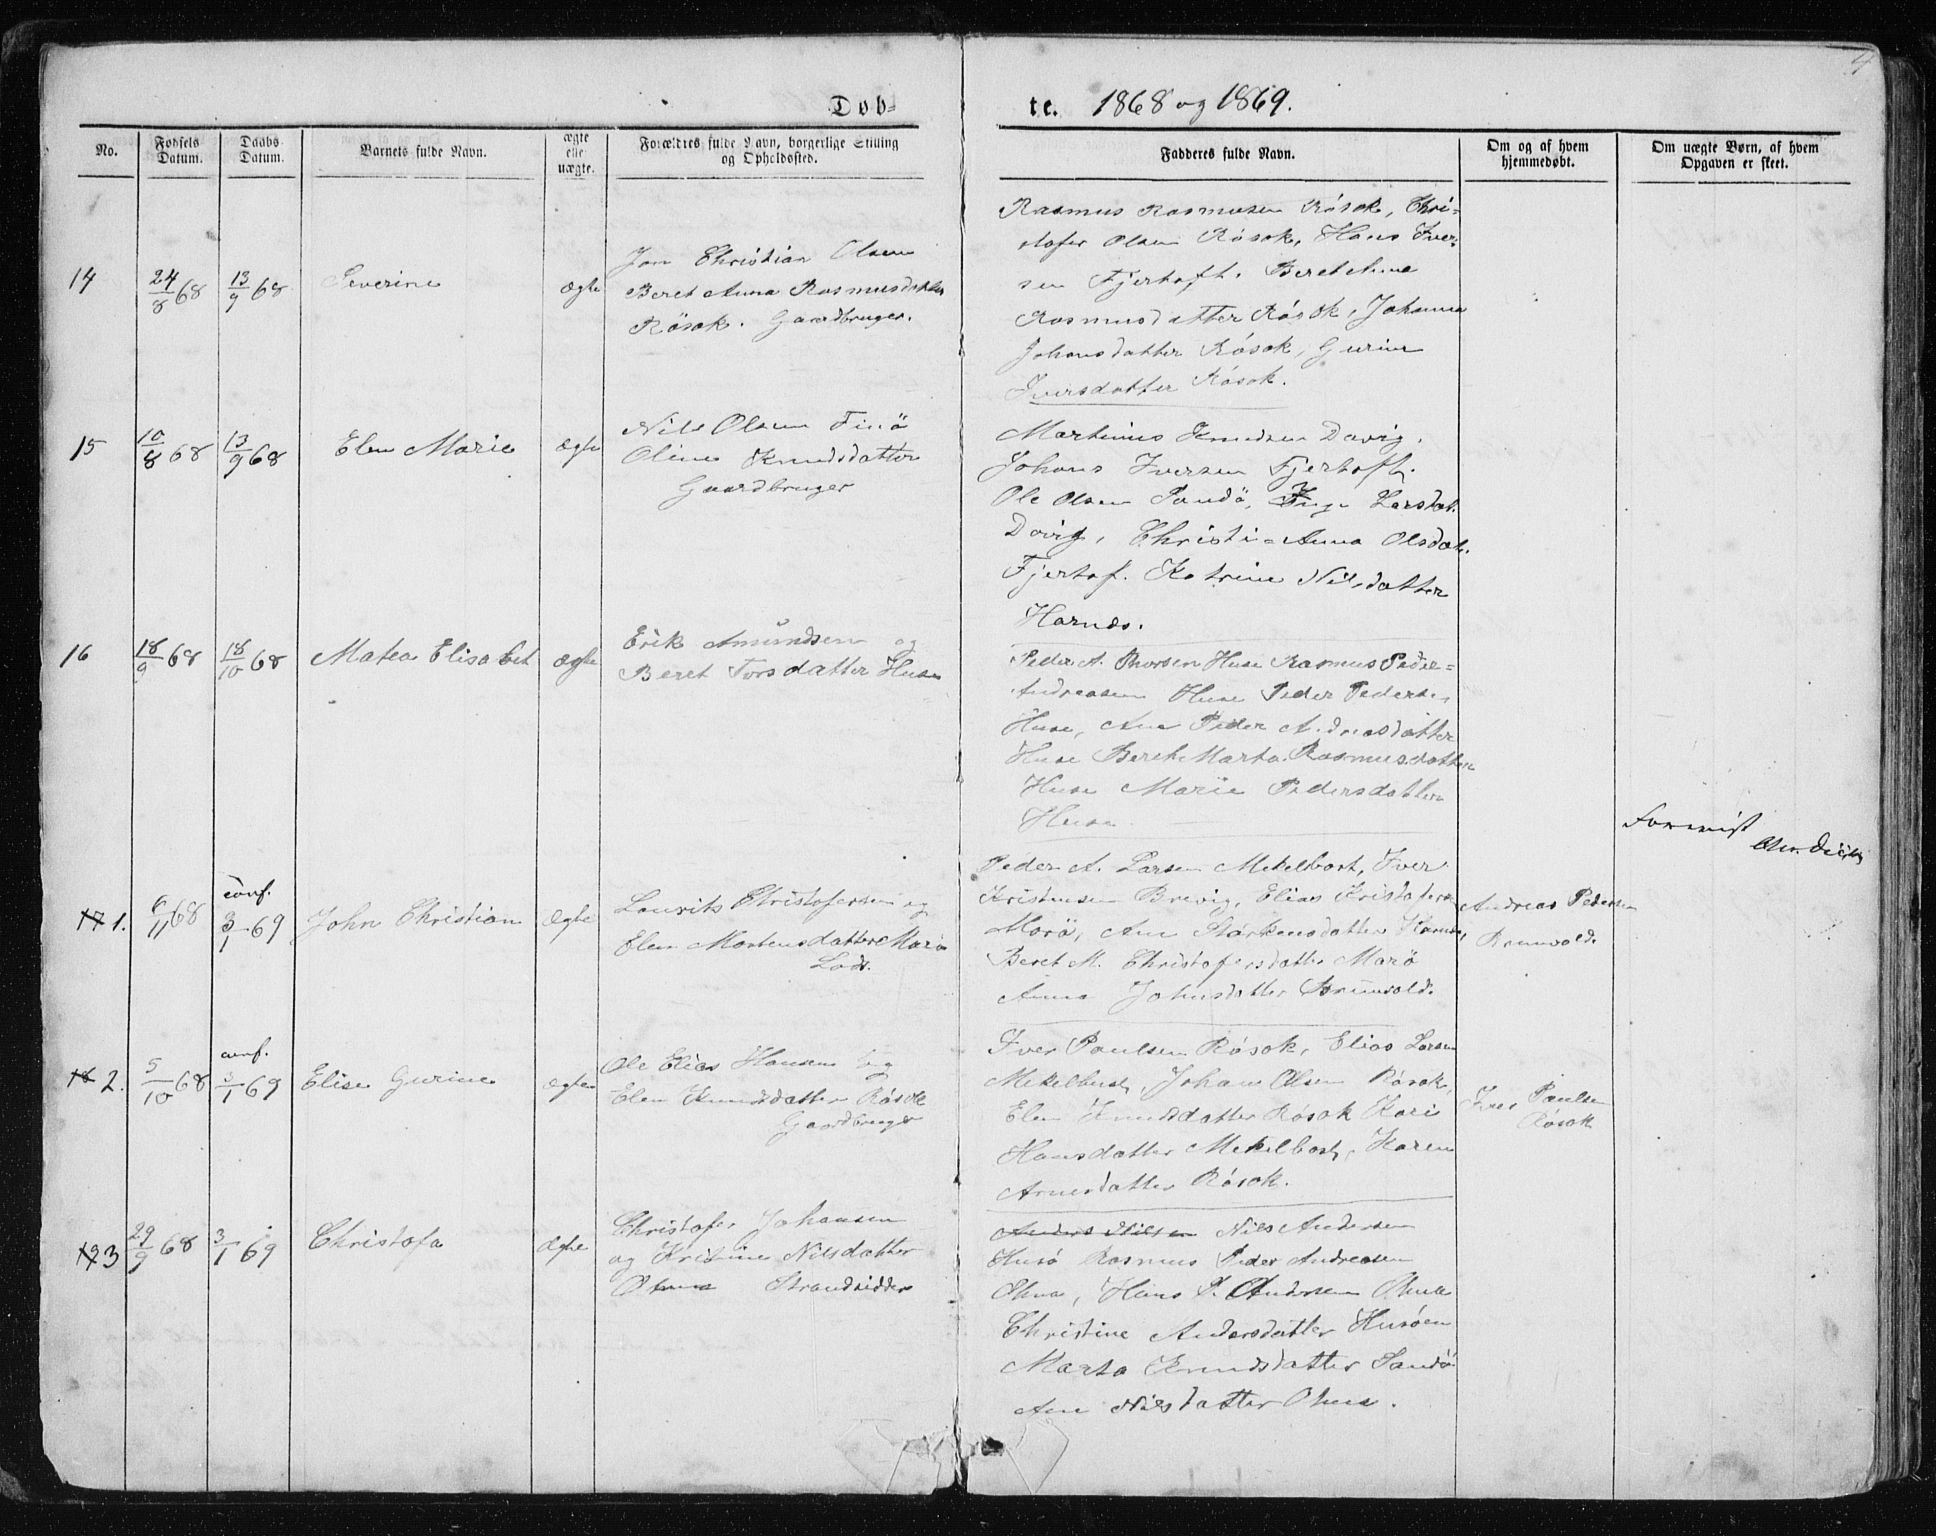 4
Døb=
te. 1868 og 1869.
No.
Fødsels Datum.
Daabs Datum.
Barnets fulde Navn.
ægte elle uægte.
Forældres fulde Navn, borgerlige Stilling og Opholdsted.
Fadderes fulde Navn.
Om og af hvem hjemmedøbt.
Om uægte Børn, af hvem Opgaven er skeet.
14
24/8 68
13/9 68
Severine
Ægte
Jon Christian Olsen
Beret Anna Rasmusdatter
Røsok. Gaardbruger.
Rasmus Rasmusen Røsok, Chri=
stofer Olsen Røsok, Hans Iver=
sen Fjertoft. Beret Anne
Rasmusdatter Røsok, Johanna
Johansdatter Røsok, Gurine
Iversdatter Røsok.
15
10/8 68
13/9 68
Elen Marie
Ægte
Nils Olsen Finö
Oline Knudsdatter
Gaardbruger
Martinus Knudsen Davig.
Johans Iversen Fjertoft.
Ole Olsen Sandö, Inge Larsdat.
Davig, Christi=Anna Olsdat.
Fjertof. Katrine Nilsdatter
Harnæs.
16
18/9 68
18/10 68
Matea Elisabet
Ægte
Erik Amundsen og
Beret Torsdatter Huse
Peder A. Thorsen Huse Rasmus Peder=
Andreasen Huse Peder Pedersen
Huse, Ane Peder Andreasdatter
Huse Beret Marta Rasmusdatter
Huse Marie Pedersdatter
Huse.
17 1.
6/11 68
conf.
3/1 69
John Christian
Ægte
Lourits Christofersen og
Elen Mortensdatter Marö
Lods.
Peder A. Larsen Mekelbost, Iver
Kristensen Brevig, Elias Kristofersen
Morö, Ane Stærkersdatter
Beret M. Christofersdatter Marö
Anna Johnsdatter Brunvold.
Andreas Pedersen
Brunvold.
18 2.
5/10 68
conf.
3/1 69
Elise Gurine
Ægte
Ole Elias Hansen og
Elen Knudsdatter Røsok
Gaardbruger
Iver Paulsen Røsok, Elias Larsen
Mekelbust, Johan Olsen Røsok,
Elen Knudsdatter Røsok Kari
Hansdatter Mekelbost, Karen
Arnesdatter Røsok.
Iver Paulsen
Røsok
19 3
29/9 68
3/1 69
Christofa
Ægte
Christofer Johansen
og Kristine Nilsdatter
Ohna Strandsidder
Anders Nilsen Nils Andersen
Husö Rasmus Peder Andreasen
Ohna, Hans P. Andersen Ohna
Christine Andersdatter Husöen
Marta Knudsdatter Sandö
Ane Nilsdatter Ohna.